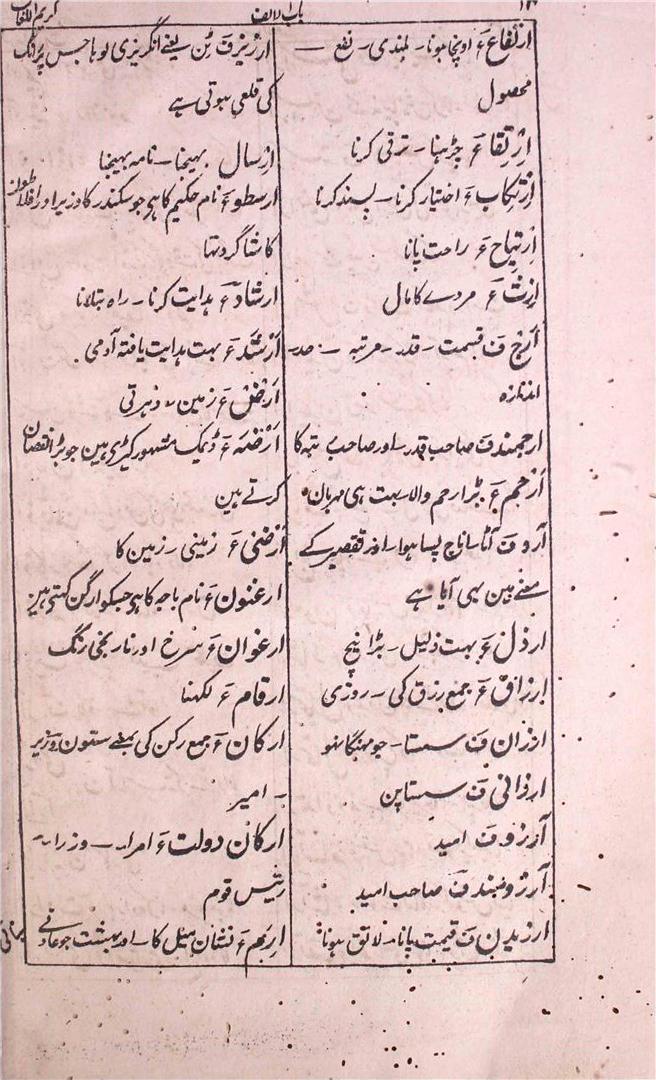 ۱۲
باب الالف
کریم اللغات
ارتفاع ءَ اونچا ہونا۔ بلندی۔ نفع ۔
محصول
اِرتِقا ءَ چڑہنا۔ ترقی کرنا
اِرتِکاب ءَ اختیار کرنا۔ پسند کرنا
اِرتِیاح ءَ راحت پانا
اِرث ءَ مردے کا مال
اَرج ف قسمت۔ قدر۔ مرتبہ ۔ حد۔
اندازہ
ارجمند ف صاحب قدر۔ اور صاحب رتبہ کا
اَرحم ءَ بڑا رحم والا۔ بہت ہی مہربان
آرد ف آٹا۔ اناج پسا ہوا۔ اور تقصیر کے
معنے مین بہی آیا ہے
ارذل ءَ بہت ذلیل۔ بڑا نیچ
ارزاق ءَ جمع رزق کی ۔ روزی
ارزان ف سستا۔ جو مہنگا نہو
ارزانی ف سستاپن
آرزو ف امید
آرزومند ف صاحب امید
ارزیدن ف قیمت پانا۔ لائق ہونا
ارزیز ف ٹِن یعنے انگریزی لوہا جس پر رانگ
کی قلعی ہوتی ہے
اِرسال بہیجنا۔ نامہ بہیجنا
ارسطو ءَ نام حکیم کا ہی جو سکندر کا وزیر اور افلاطون
کا شاگرد تہا
ارشاد ءَ ہدایت کرنا۔ راہ بتلانا
اَرشَد ءَ بہت ہدایت یافتہ آدمی
اَرض ءَ زمین ۔ دہرتی
اَرضَہ ءَ دیمک مشہور کیڑی ہین جو بڑا نقصان
کرتے ہین
اَرضی ءَ زمینی ۔ زمین کا
ارغنون ءَ نام باجہ کا ہی جسکو ارگن کہتی ہین
ارغوان ءَ سرخ اور نارنجی رنگ
ارقام ءَ لکہنا
ارکان ءَ جمع رکن کی بمعنے ستون۔ وزیر
۔ امیر
ارکان دولت ءَ امرا۔ ۔ وزرا۔
رئیس قوم
اِرَم ءَ نشان میل کا۔ اور بہشت جو عاد نے
بنائی